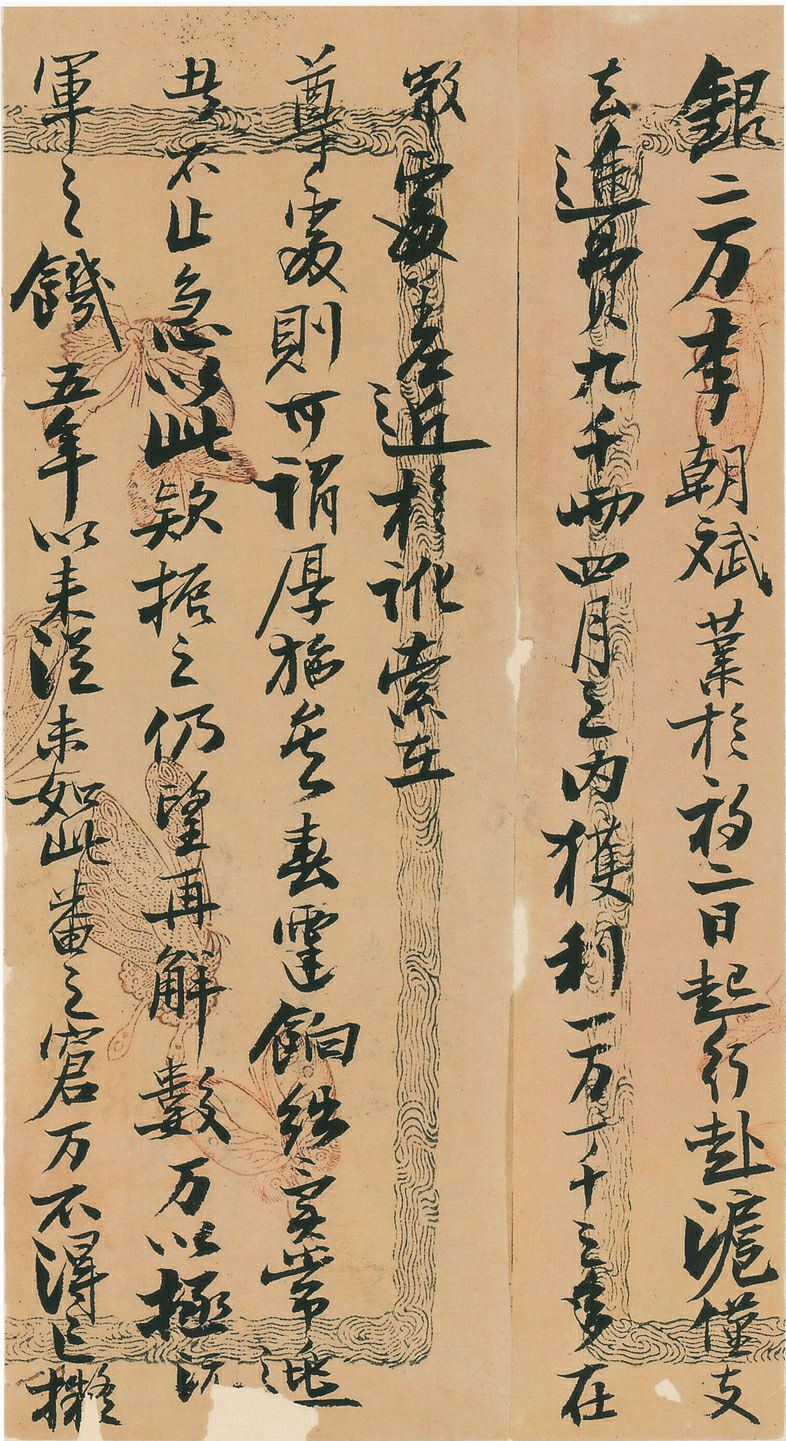 銀二万李朝斌業於初二日起行赴滬僅支
去費九千兩四月之内獲利一万一千之多在
敝處差近於訛索在
尊處則可謂厚施矣春霆餉絀異常逃
不止急以此款振之仍望再解數万以
軍之饑五年以来從未如此畨之窘万不得已擬